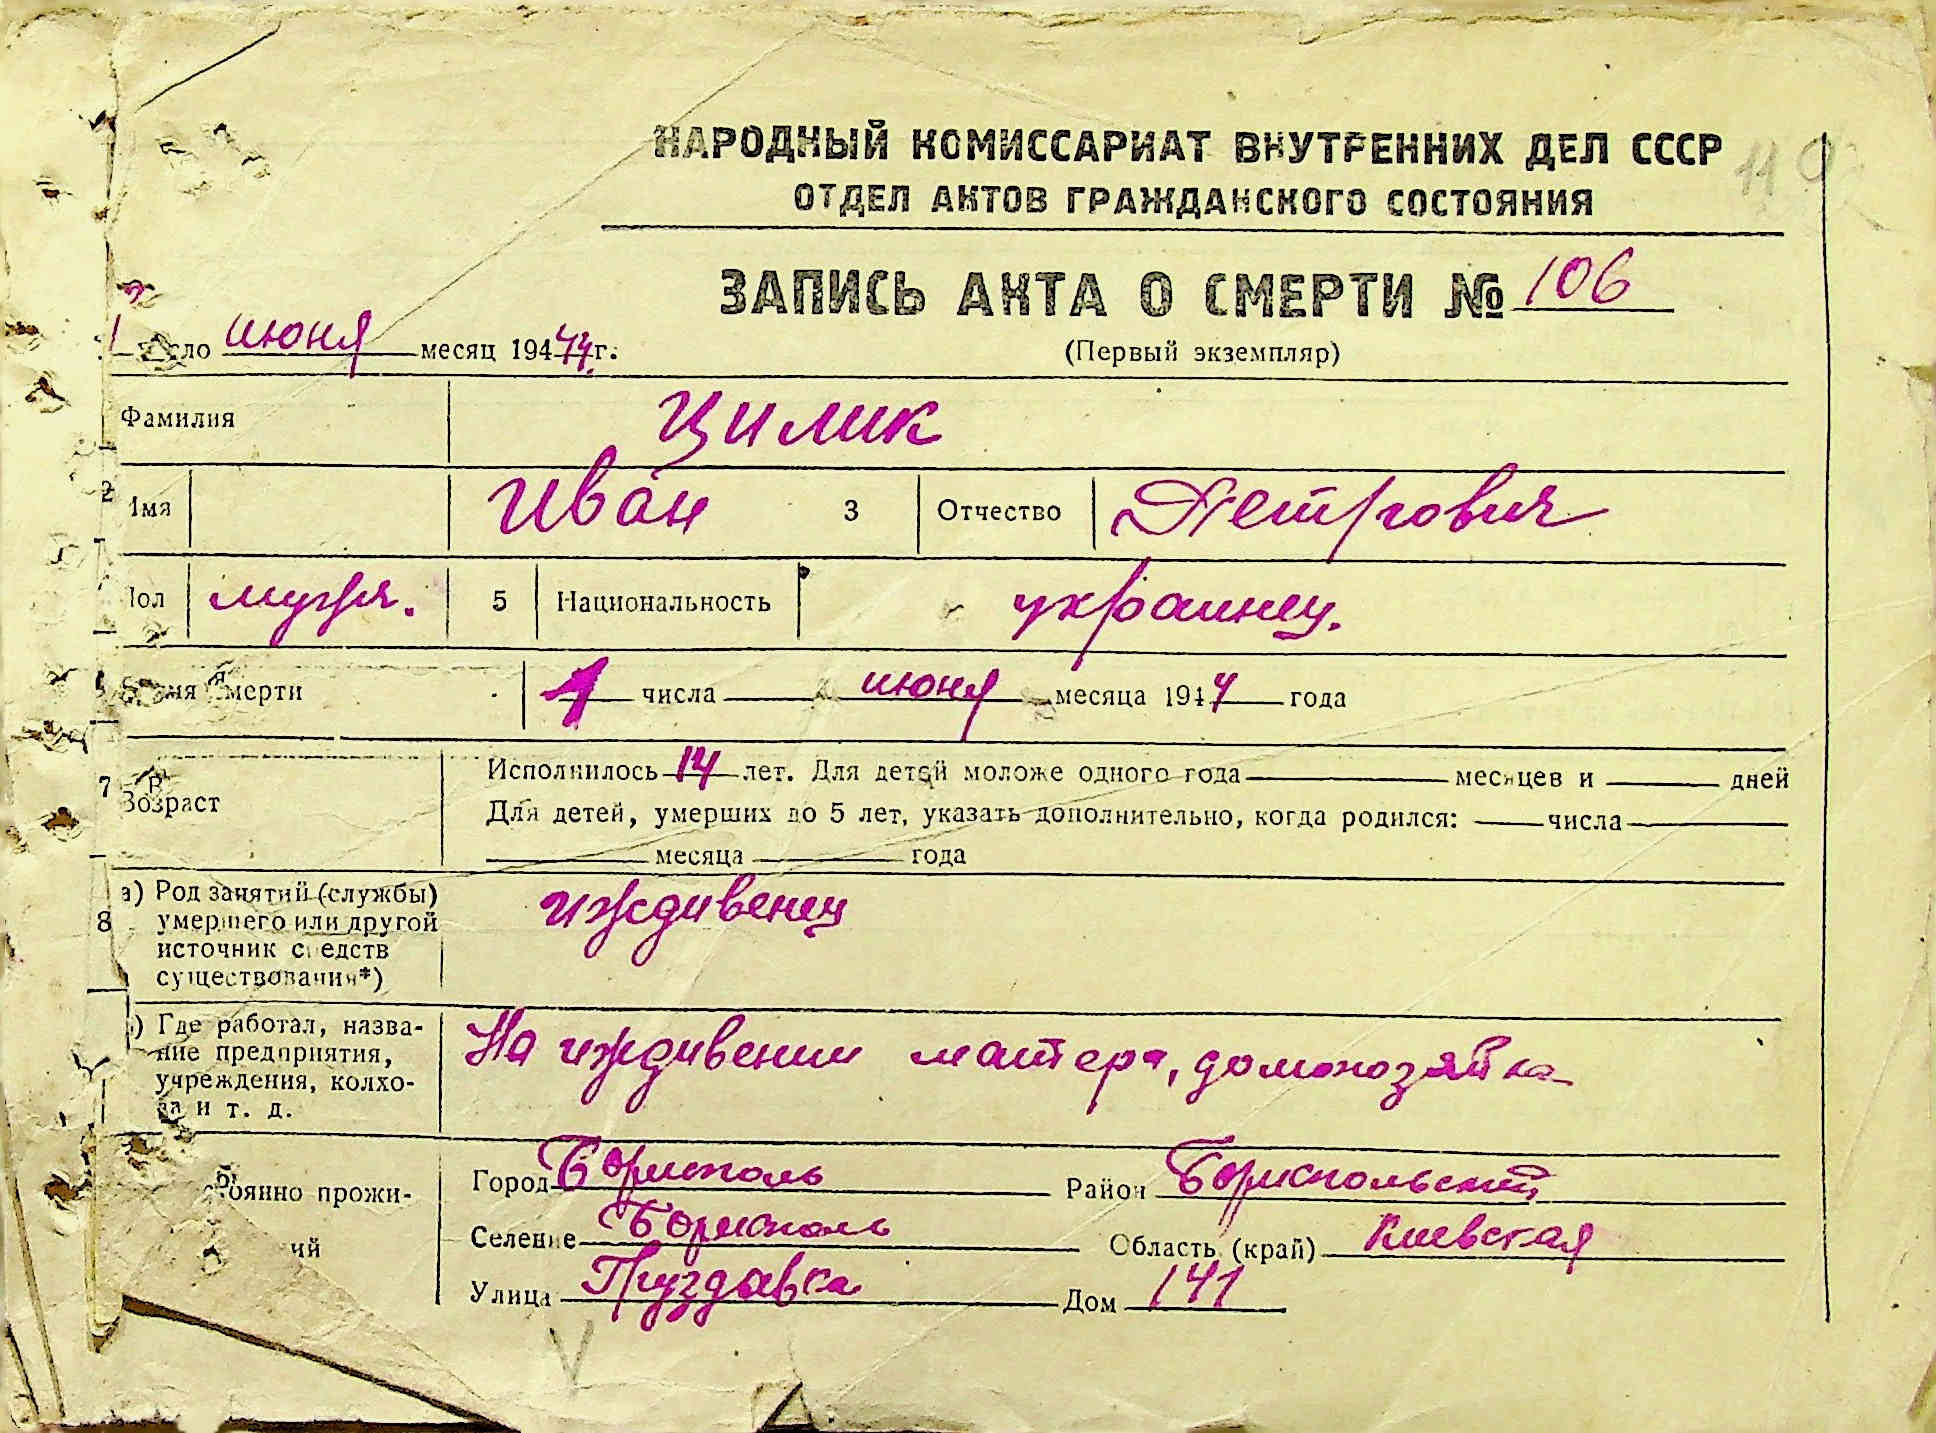 НАРОДНЫЙ КОМИССАРИАТ ВНУТРЕННИХ ДЕЛ СССР
ОТДЕЛ АКТОВ ГРАЖДАНСКОГО СОСТОЯНИЯ
ЗАПИСЬ АКТА О СМЕРТИ № 106
число июня месяц 194 44 г.
(Первый экземпляр)
Фамилия Цилик
2 Имя Иван 3 Отчество Петрович
Пол мужч. 5 Национальность украинец.
Время смерти 1 числа июня месяца 1944 года
7 Возраст Исполнилось 14 лет. Для детей моложе одного года месяцев и дней
Для детей, умерших до 5 лет, указать дополнительно, когда родился: числа
месяца года
8 а) Род занятий (службы) умершего или другой источник средств существования*) иждивенец
) Где работал, назва-
ние предприятия,
учреждения, колхо-
за и т. д.
На иждивении матери, домохозяйка
оянно прожи-
ий
Город Борисполь Район Бориспольский
Селение Борисполь Область (край) Киевская
Улица Дом 141